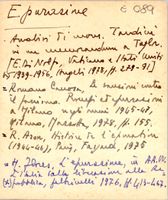 Epurazione
E 089
Analisi di mons. Tardini
in un memorandum a Taylor
[E. Di Nolfo, Vaticano e Stati Uniti
1939-1956, Angeli 1978, p. 279-91]
• Romano Canosa, Le sanzioni contro
il fascismo. Processi ed epurazioni
a Milano negli anni 1945-47,
Milano, Mazzotta, 1978, p. 155.
• R. Aron, Histoire de l'épuration
(1944-46), Paris, Fayard, 1975
• M. Flores, L'epurazione, in AA.VV.
L'Italia dalla liberazione alla Re-
pubblica, Feltrinelli 1976, p. 413-